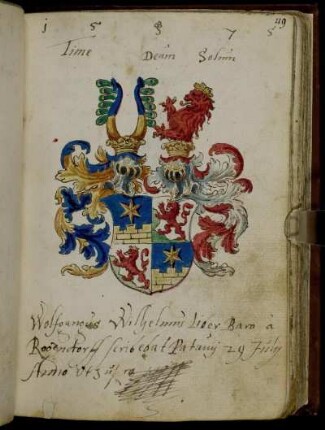 119
1 5 8 7 5
Time Deum Solum
Wolfgangus Wilhelmus Liber Baro à
Rogendorff scribebat Patavij 29 Julij
Anno